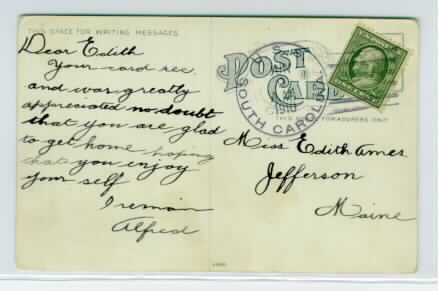 THIS SPACE FOR WRITING MESSAGES
Dear Edith
Your card rec.
and was greatly
appreciated no doubt
that you are glad
to get home hoping
that you enjoy
your self
I remain
Alfred
U. S. S.
SOUTH CAROLINA
POST
CARD
THIS FOR ADDRESS ONLY
Miss Edith Ames
Jefferson
Maine